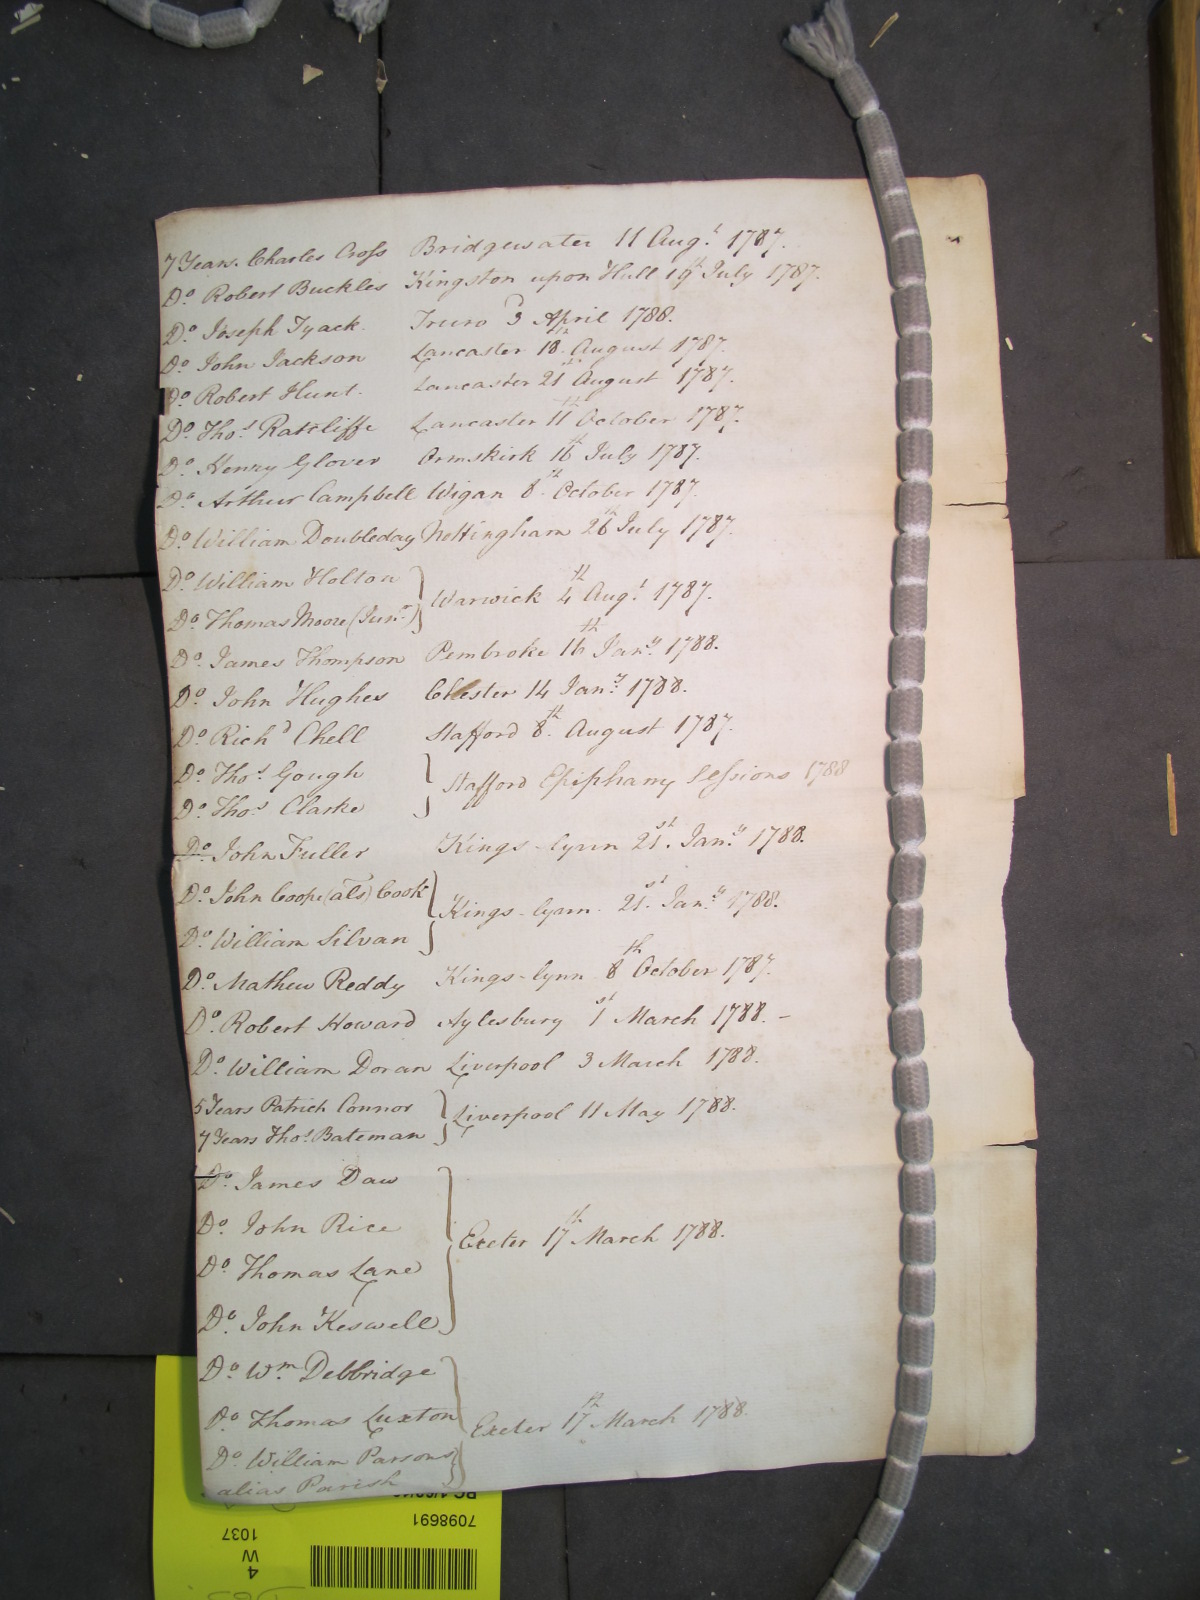 7 Years. Charles Cross Bridgewater 11 Augt. 1787.
Do. Robert Buckles Kingston upon Hull 19th July 1787.
Do. Joseph Tyack. Truro 3 April 1788.
Do. John Jackson Lancaster 18th August 1787.
Do. Robert Hunt. Lancaster 21st August 1787.
Do. Thos. Ratcliffe Lancaster 11th October 1787.
Do. Henry Glover Ormskirk 16th July 1787.
Do. Arthur Campbell Wigan 8th October 1787.
Do. William Doubleday Nottingham 26th July 1787.
Do. William Holton
Do. Thomas Moore (Junr.) Warwick 4th Augt. 1787.
Do. James Thompson Pembroke 16th Jany. 1788.
Do. John Hughes Chester 14 Jany. 1788.
Do. Richd Chell Stafford 8th August 1787.
Do. Thos. Gough
Do. Thos. Clarke Stafford Epiphany Sessions 1788
Do. John Fuller Kings-lynn 21st. Jany. 1788.
Do. John Coope (als) Cook
Do. William Silvan Kings-lynn. 21st. Jany. 1788.
Do. Mathew Reddy Kings-lynn 8th October 1787.
Do. Robert Howard Aylesbury 1st March 1788. -
Do. William Doran Liverpool 3 March 1788.
5 Years Patrick Connor
7 Years Thos. Bateman Liverpool 11 May 1788.
Do. James Daw
Do. John Rice Exeter 17th March 1788.
Do. Thomas Lane
Do. John Keswell
Do. Wm. Debbridge
Do. Thomas Luxton Exeter 17th March 1788.
Do. William Parsons
alias Parish
7098691
1037
W
4